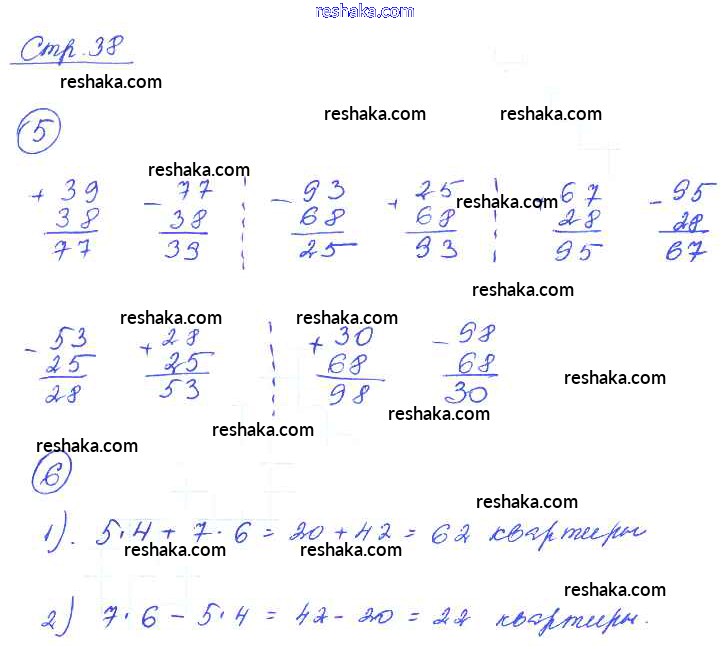 reshaka.com
Стр. 38
reshaka.com
reshaka.com reshaka.com
5
reshaka.com
+ 39 - 77 - 93 + 25 + 67 - 95
reshaka.com
38 38 68 68 28 28
77 39 25 93 95 67
reshaka.com
reshaka.com reshaka.com
- 53 + 28 + 30 - 98
25 25 68 68
28 53 98 30
reshaka.com
reshaka.com
reshaka.com
reshaka.com
6
reshaka.com
1). 5·4 + 7·6 = 20 + 42 = 62 квартиры
reshaka.com reshaka.com
reshaka.com
2) 7·6 - 5·4 = 42 - 20 = 22 квартиры.